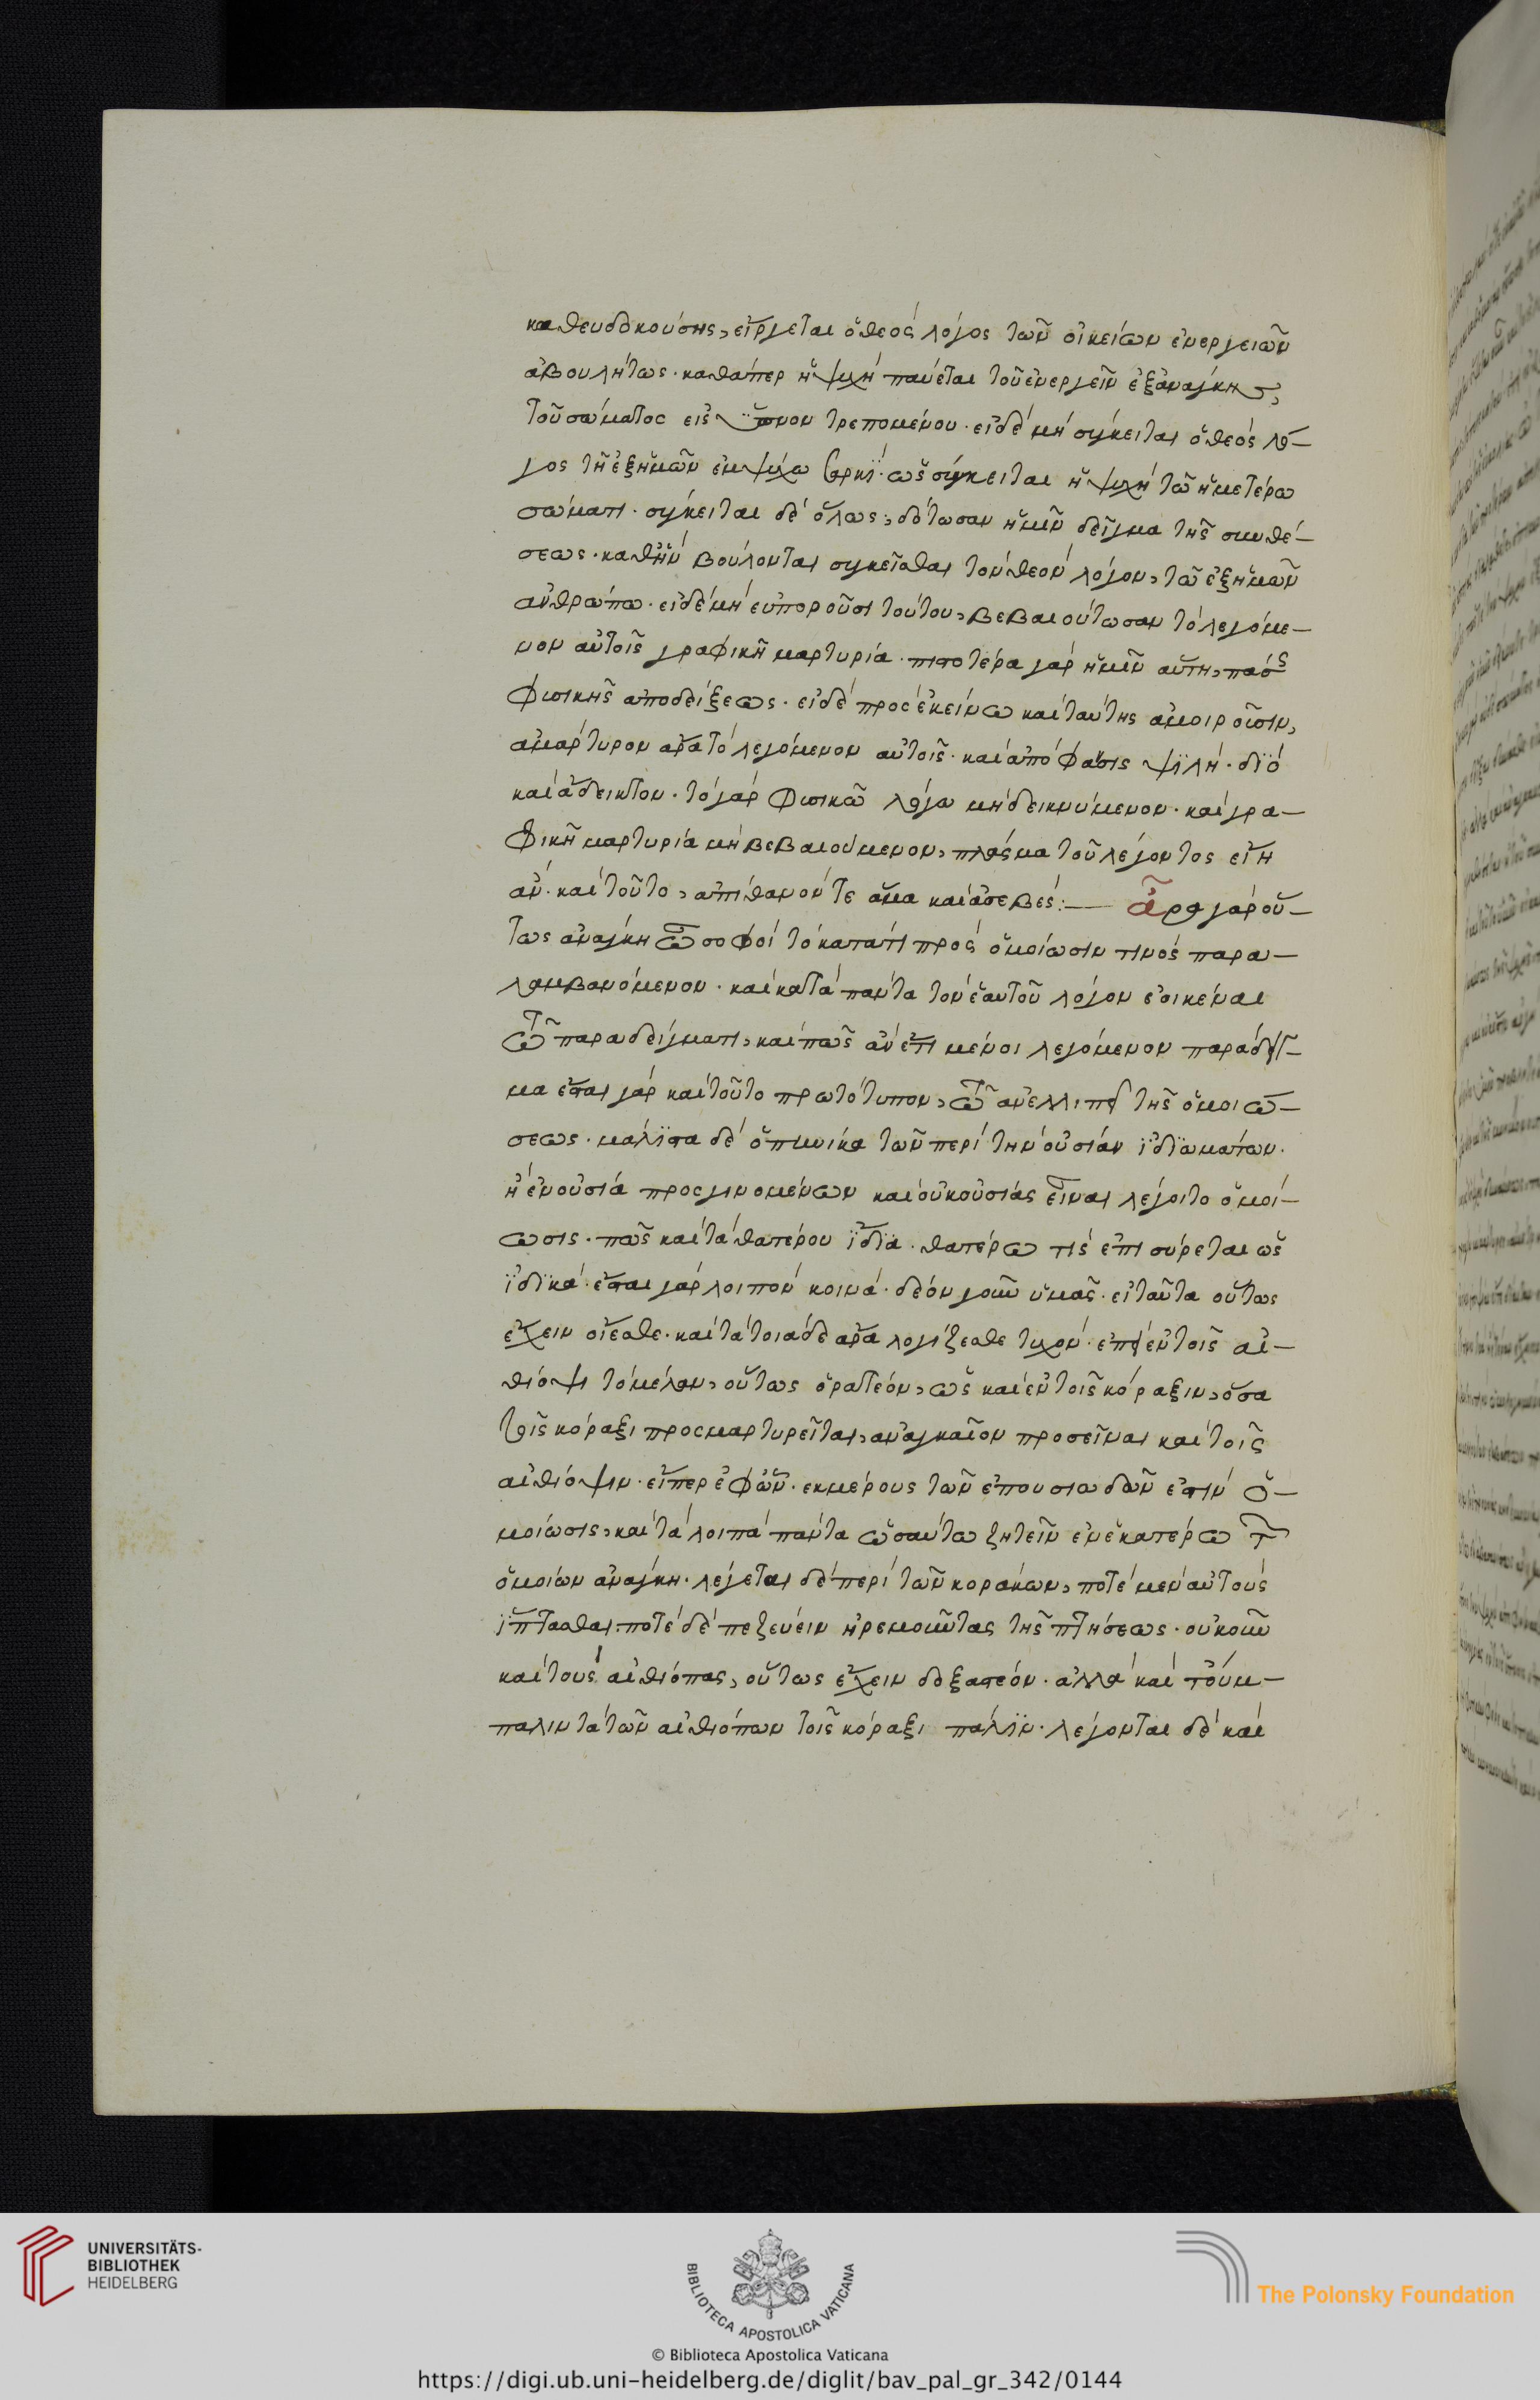 καθευδοκούσης, εἴργεται ὁ θεὸς λόγος τῶν οἰκείων ἐνεργειῶν
ἀβουλήτως· καθάπερ ἡ ψυχὴ παύεται τοῦ ἐνεργεῖν ἐξ ἀνάγκης,
τοῦ σώματος εἰς ὕπνον τρεπομένου· εἰ δὲ μὴ σύγκειται ὁ θεὸς λό–
γος τῇ ἐξ ἡμῶν ἐμψύχω σαρκῒ· ὡς σύγκειται ἡ ψυχὴ τῶ ἡμετέρω
σώματι· σύγκειται δὲ ὅλως, δότωσαν ἡμῖν δεῖγμα τῆς συνθέ–
σεως· καθ' ἣν βούλονται συγκεῖσθαι τὸν θεὸν λόγον, τῶ ἐξ ἡμῶν
ἀνθρώπω· εἰ δὲ μὴ εὐποροῦσι τούτου, βεβαιούτωσαν τὸ λεγόμε–
νον αὐτοῖς γραφικῆ μαρτυρία· πιστοτέρα γὰρ ἡμῖν αὕτη, πάσης
φυσικῆς ἀποδείξεως· εἰ δὲ πρὸς ἐκείνω καὶ ταύτης ἀμοιροῦσιν,
ἀμάρτυρον ἄρα τὸ λεγόμενον αὐτοῖς· καὶ ἀπόφασις ψϊλὴ· δϊὸ
καὶ ἄδεικτον· τὸ γὰρ φυσικῶ λόγω μὴ δεικνυμενον· καὶ γρα–
φικῆ μαρτυρία μὴ βεβαιούμενον, πλάσμα τοῦ λέγοντος εἴη
ἄν· καὶ τοῦτο, ἀπίθανόν τε ἅμα καὶ ἀσεβές:— Ἆρα γὰρ οὕ–
τως ἀνάγκη ὦ σοφοὶ τὸ κατά τι πρὸς ὁμοίωσιν τινὸς παρα–
λαμβανόμενον· καὶ κατὰ πάντα τὸν ἑαυτοῦ λόγον ἐοικέναι
τῶ παραδείγματι, καὶ πῶς ἂν ἔτι μένοι λεγόμενον παράδειγ–
μα ἔσται γὰρ καὶ τοῦτο πρωτότυπον, τῶ ἀνελλιπεῖ τῆς ὁμοιώ–
σεως· μάλϊστα δὲ ὁπηνίκα τῶν περὶ τὴν οὐσίαν ἰδϊωμάτων·
ἢ ἐν οὐσία προσγινομένων καὶ οὐκ οὐσίας εἶναι λέγοιτο ὁμοί–
ωσις· πῶς καὶ τὰ θατέρου ἴδϊα· θατέρω τὶς ἐπισύρεται ὡς
ἰδϊκὰ· ἔσται γὰρ λοιπὸν κοινά· δέον γοῦν ὑμᾶς· εἰ ταῦτα οὕτως
ἔχειν οἴεσθε· καὶ τὰ τοιάδε ἄρα λογίζεσθε τυχὸν· ἐπεὶ ἐν τοῖς αἰ–
θίοψι τὸ μέλαν, οὕτως ὁρατέον, ὡς καὶ ἐν τοῖς κόραξιν, ὅσα
τοῖς κόραξι προσμαρτυρεῖται, ἀναγκαῖον προσεῖναι καὶ τοῖς
αἰθίοψιν· εἴπερ ἐφ' ὧν· ἐκ μέρους τῶν ἐπουσιωδῶν ἐστὶν ὁ–
μοίωσις, καὶ τὰ λοιπὰ πάντα ὡσαύτω ζητεῖν ἐν ἑκατέρω τῶν
ὁμοίων ἀνάγκη· λέγεται δὲ περὶ τῶν κοράκων, ποτὲ μὲν αὐτοὺς
ἵπτασθαι· ποτὲ δὲ πεζεύειν ἠρεμοῦντας τῆς πτήσεως· οὐκοῦν
καὶ τοὺς αἰθίοπας, οὕτως ἔχειν δοξαστέον· ἀλλὰ καὶ τοὔμ–
παλιν τὰ τῶν αἰθιόπων τοῖς κόραξι πάλϊν· λέγονται δὲ καὶ
UNIVERSITÄTS-
BIBLIOTHEK
HEIDELBERG
BIBLIOTECA APOSTOLICA VATICANA
The Polonsky Foundation
© Biblioteca Apostolica Vaticana
https://digi.ub.uni-heidelberg.de/diglit/bav_pal_gr_342/0144